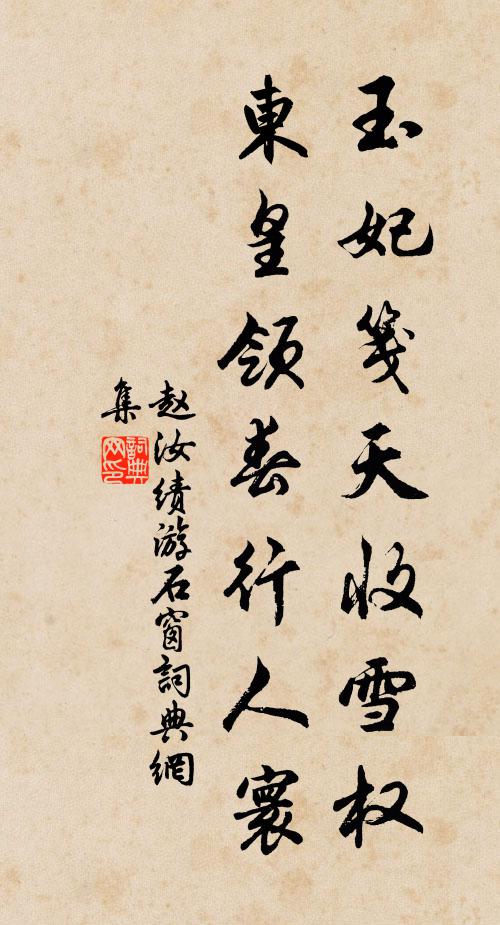 玉妃笺天收雪权
東皇領春行人寰
赵汝績游石窗詞典網
集
詞典網印